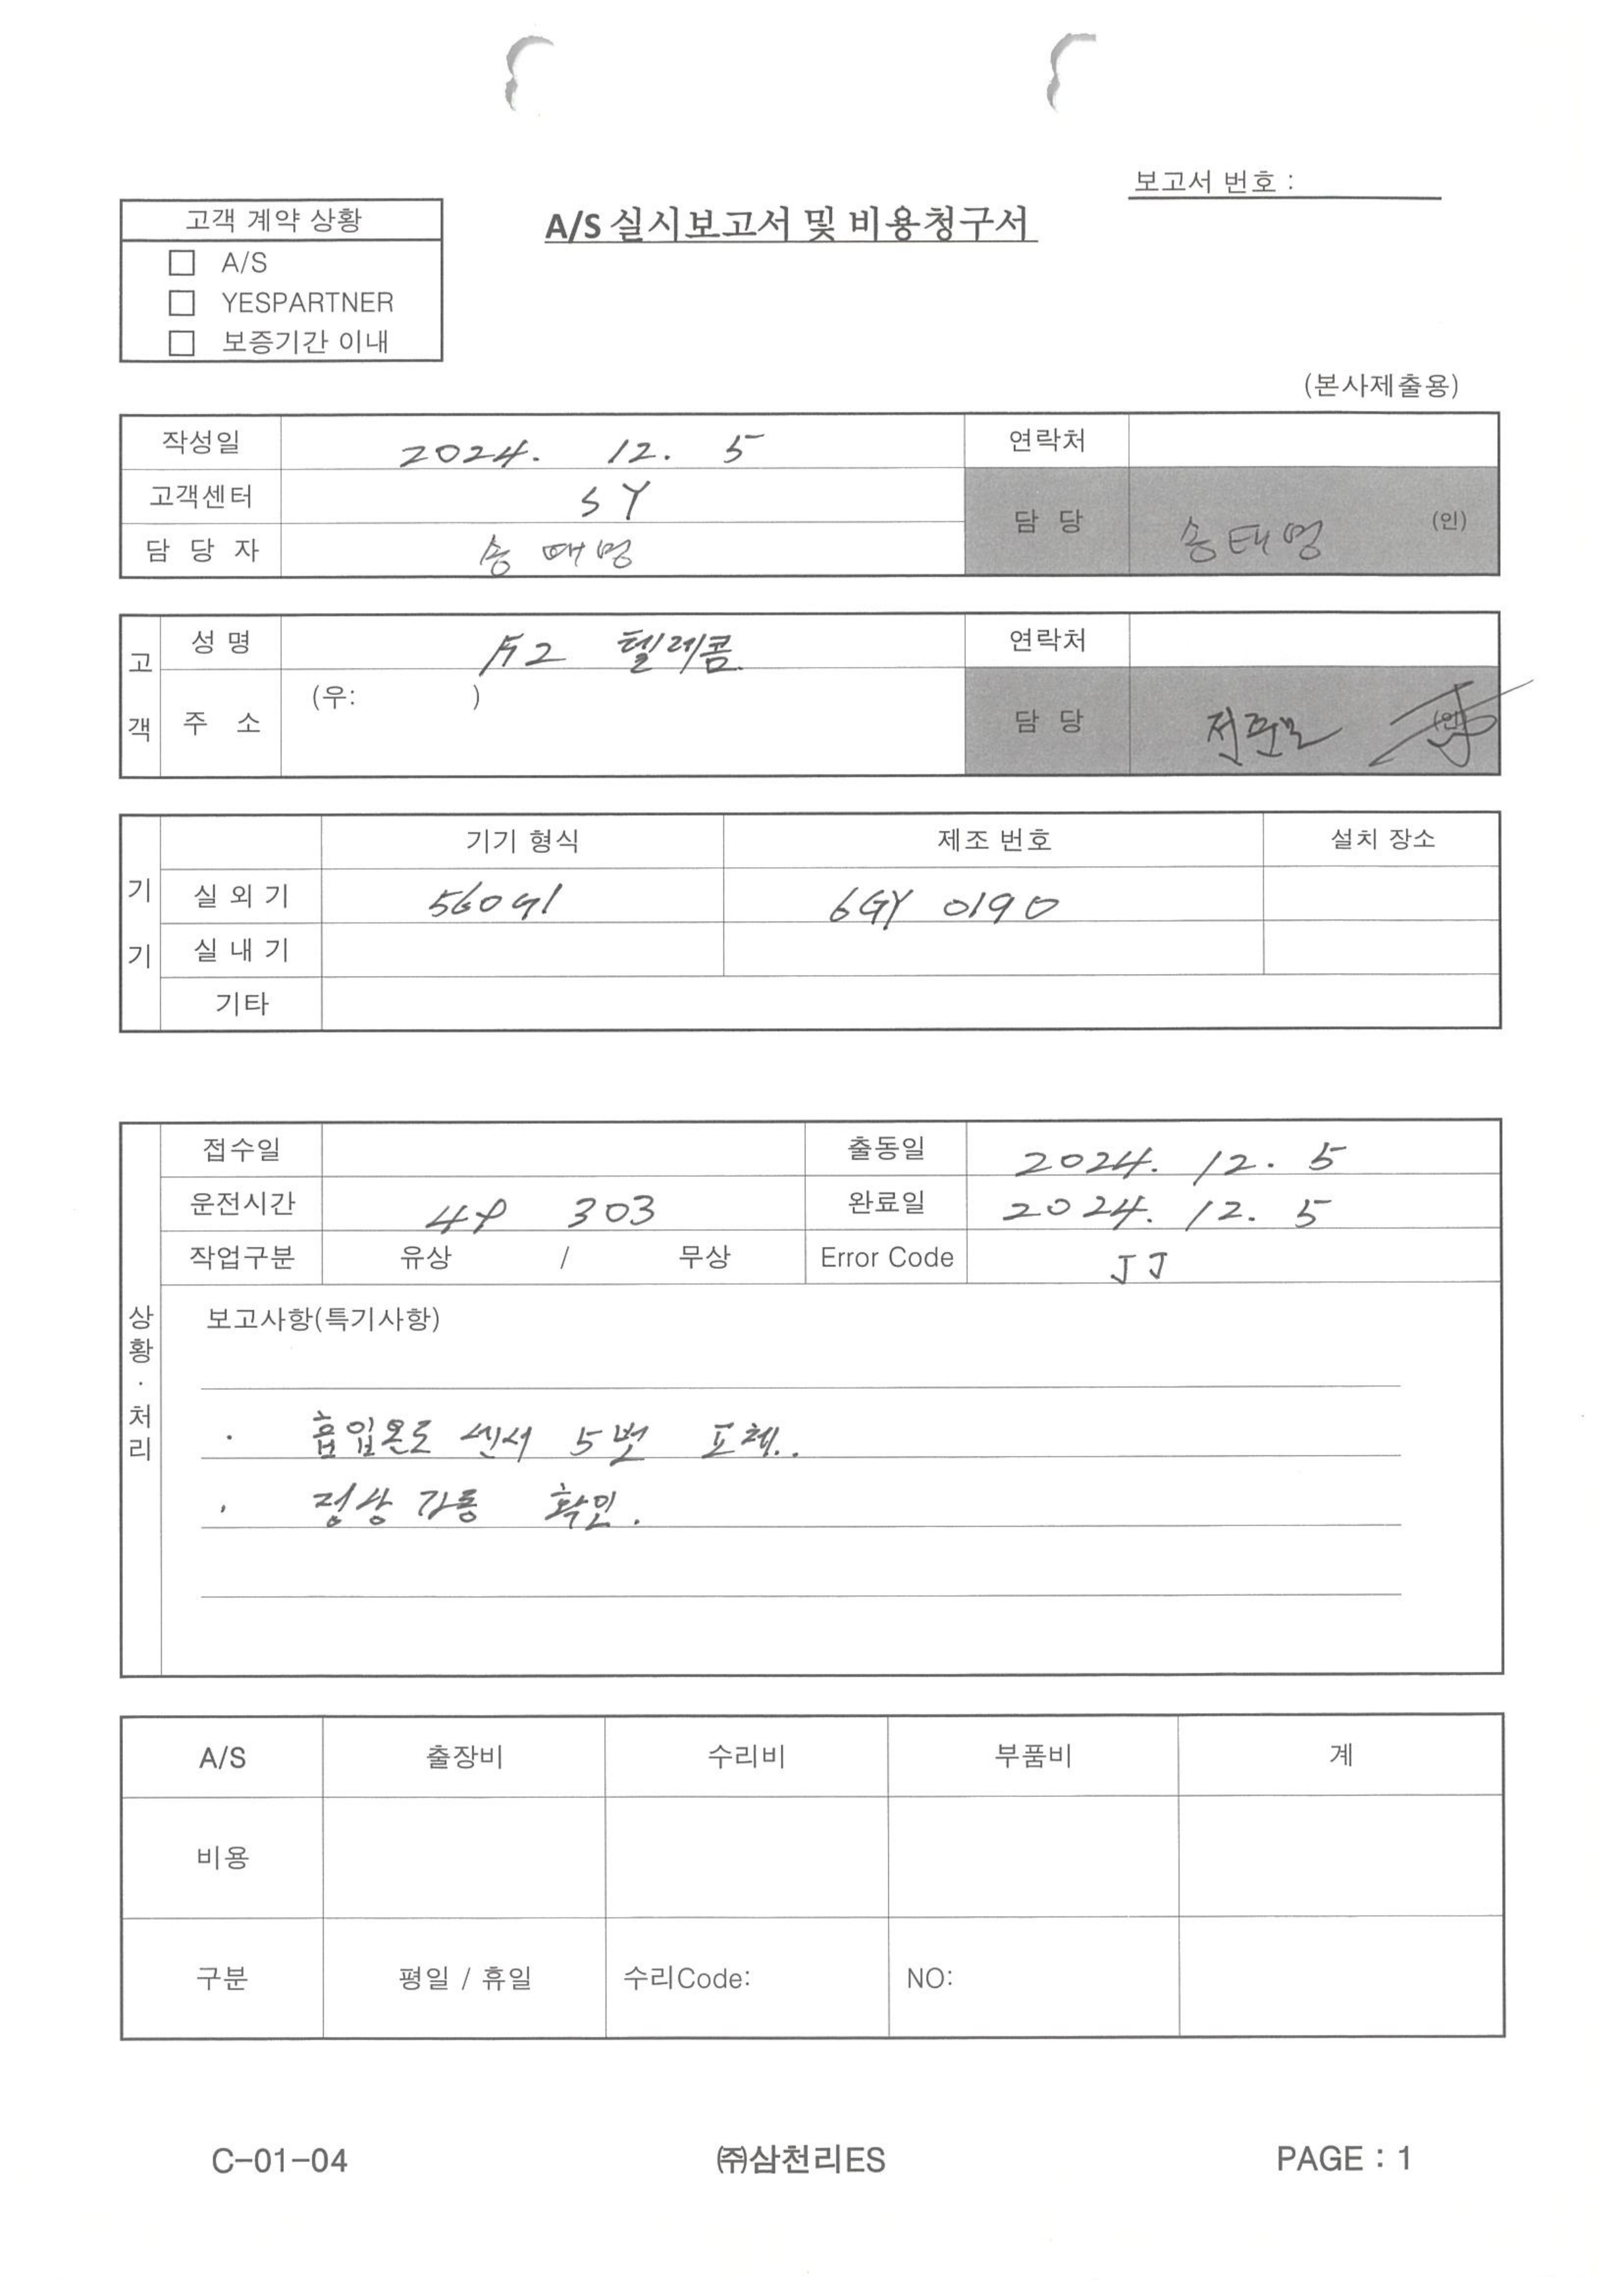 보고서 번호 :
고객 계약 상황
A/S 실시보고서 및 비용청구서
□ A/S
□ YESPARTNER
□ 보증기간 이내
(본사제출용)
작성일 2024. 12. 5 연락처
고객센터 SY
담 당 송태명 (인)
담 당 자 송태명
고객
성 명 텔레콤 연락처
주 소 (우: )
담 당 (인)
기기
기기 형식 제조 번호 설치 장소
실 외 기 560G1 6GY 0190
실 내 기
기타
상황·처리
접수일 출동일 2024. 12. 5
운전시간 303 완료일 2024. 12. 5
작업구분 유상 / 무상 Error Code JJ
보고사항(특기사항)
· 흡입온도 센서 5번 교체..
· 정상 가동 확인.
A/S 출장비 수리비 부품비 계
비용
구분 평일 / 휴일 수리Code: NO:
C-01-04 ㈜삼천리ES PAGE : 1